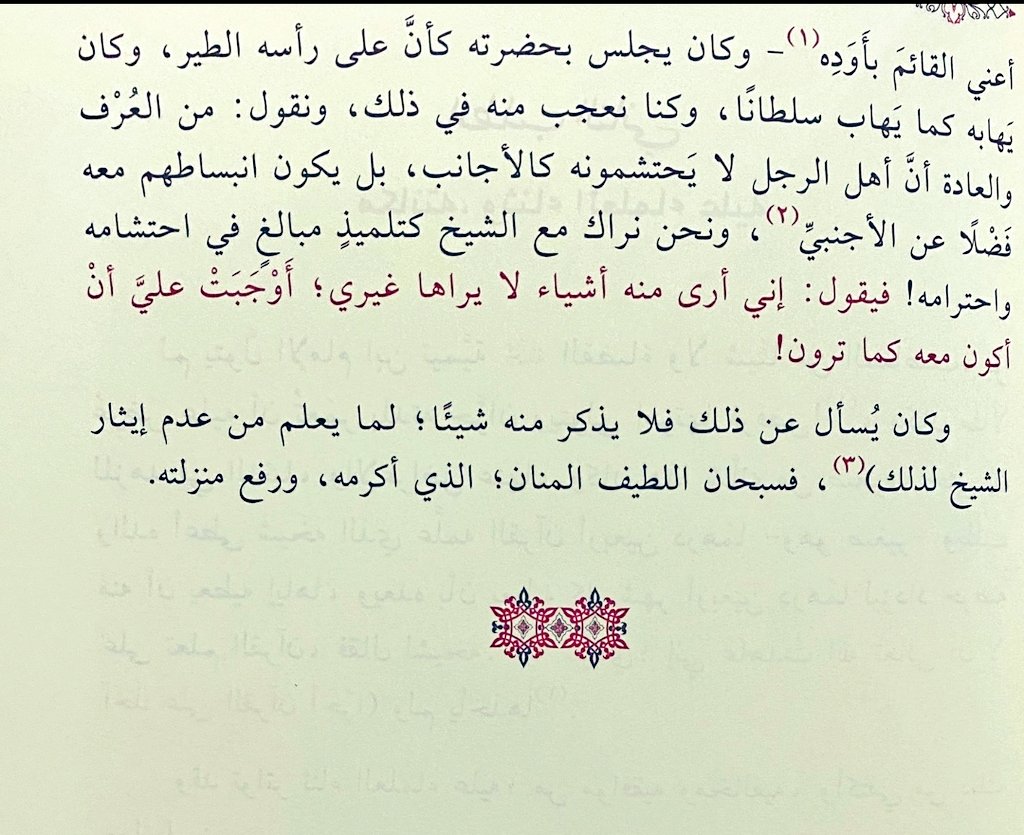 أعني القائمَ بأَوَدِه(١) - وكان يجلس بحضرته كأنَّ على رأسه الطير، وكان
يَهابه كما يَهاب سلطانًا، وكنا نعجب منه في ذلك، ونقول: من العُرْف
والعادة أنَّ أهل الرجل لا يَحتشمونه كالأجانب، بل يكون انبساطهم معه
فَضْلًا عن الأجنبيِّ(٢)، ونحن نراك مع الشيخ كتلميذٍ مبالغٍ في احتشامه
واحترامه! فيقول: إني أرى منه أشياء لا يراها غيري؛ أَوْجَبَتْ عليَّ أنْ
أكون معه كما ترون!
وكان يُسأل عن ذلك فلا يذكر منه شيئًا؛ لما يعلم من عدم إيثار
الشيخ لذلك)(٣)، فسبحان اللطيف المنان؛ الذي أكرمه، ورفع منزلته.